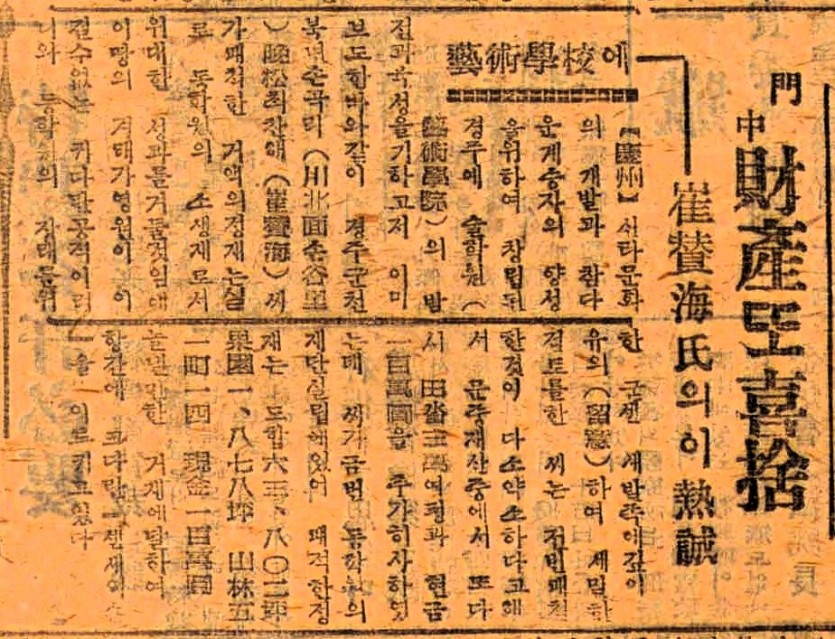 門中財產또喜捨
崔贊海氏의이熱誠
藝術學校에
【慶州】신라문화
의 개발과 참다
운계승자의 양성
을위하여 창립된
경주예술학원(
藝術學院)의 발
전과육성을기하고저 이미
보도한바와같이 경주군천
북면손곡리(川北面손谷里
)
가쾌척한 거액의정재는실
로 동학원의 소생제로서
위대한 성과를거둘것임에
어떵의 영원이 이
질수없는 커다란공적이려
니와 동학원의 장래를위
한 굳센 세발뚝에깊이
유의(留意)하여 세밀한
검토를한 씨는 전번쾌척
한것이 다소약소하다고해
서 문중재산중에서 또다
시 田畓三萬여평과 현금
一百萬圜을 추가히사하였
는데 씨가금번 동학원의
재단설립에있어 쾌척한정
재는 도합六三、八〇二坪
果園一、八七八坪 山林五
一町一四 現金一百萬圜
한 거게에달하여
항간에 크다란 센세이
을 이르키고있다